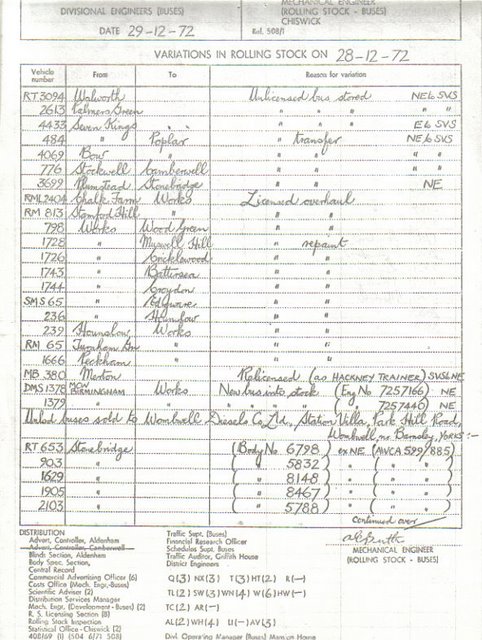 DIVISIONAL ENGINEERS (BUSES)
MECHANICAL ENGINEER
(ROLLING STOCK - BUSES)
CHISWICK
DATE 29-12-72
Ref. 508/1
VARIATIONS IN ROLLING STOCK ON 28-12-72
Vehicle number From To Reason for variation
RT 3094 Walworth Unlicensed bus stored NE6 SVS
2613 Palmers Green " " " " "
4433 Seven Kings " " " E6 SVS
484 " Poplar " transfer NE/6 SVS
4069 Bow " " " " "
776 Stockwell Camberwell " " " "
3699 Plumstead Stonebridge " " NE
RML 2404 Chalk Farm Works Licensed overhaul
RM 813 Stamford Hill " " "
798 Works Wood Green " "
1728 " Muswell Hill " repaint
1726 " Cricklewood " "
1743 " Battersea " "
1744 " Croydon " "
SMS 65 " Edgware " "
236 " Hounslow " "
239 Hounslow Works " "
RM 65 Turnham Gn " " "
1666 Peckham " " "
MB 380 Merton Relicensed (as HACKNEY TRAINER) SVSLNE
DMS 1378 MCW BIRMINGHAM Works New bus into stock (Eng No 7257166) NE
1379 " " " " " ( " 7257440) NE
Unlicd buses sold to Wombwell Diesels Co Ltd, Station Villa, Park Hill Road,
Wombwell, nr. Barnsley, YORKS :-
RT 653 Stonebridge (Body No 6798) ex NE (AVCA 599/885)
903 " ( " 5832) " ( " " )
1629 " ( " 8148) " ( " " )
1905 " ( " 8467) " ( " " )
2103 " ( " 5788) " ( " " )
continued over
MECHANICAL ENGINEER
(ROLLING STOCK - BUSES)
DISTRIBUTION
Advert. Controller, Aldenham
Advert. Controller, Camberwell
Blinds Section, Aldenham
Body Spec. Section,
Central Record
Commercial Advertising Officer (6)
Costs Office (Mech. Engr.-Buses)
Scientific Adviser (2)
Distribution Services Manager
Mech. Engr. (Development - Buses) (2)
R. S. Licensing Section (8)
Rolling Stock Inspection
Statistical Office - Chiswick (2)
Traffic Supt. (Buses)
Financial Research Officer
Schedules Supt. Buses
Traffic Auditor, Griffith House
District Engineers
Q(3) NX(3) T(3) HT(2) R(-)
TL(2) SW(3) WN(4) W(6) HW(-)
TC(2) AR(-)
AL(2) WH(4) U(-) AV(3)
Divl. Operating Manager (Buses) Mansion House